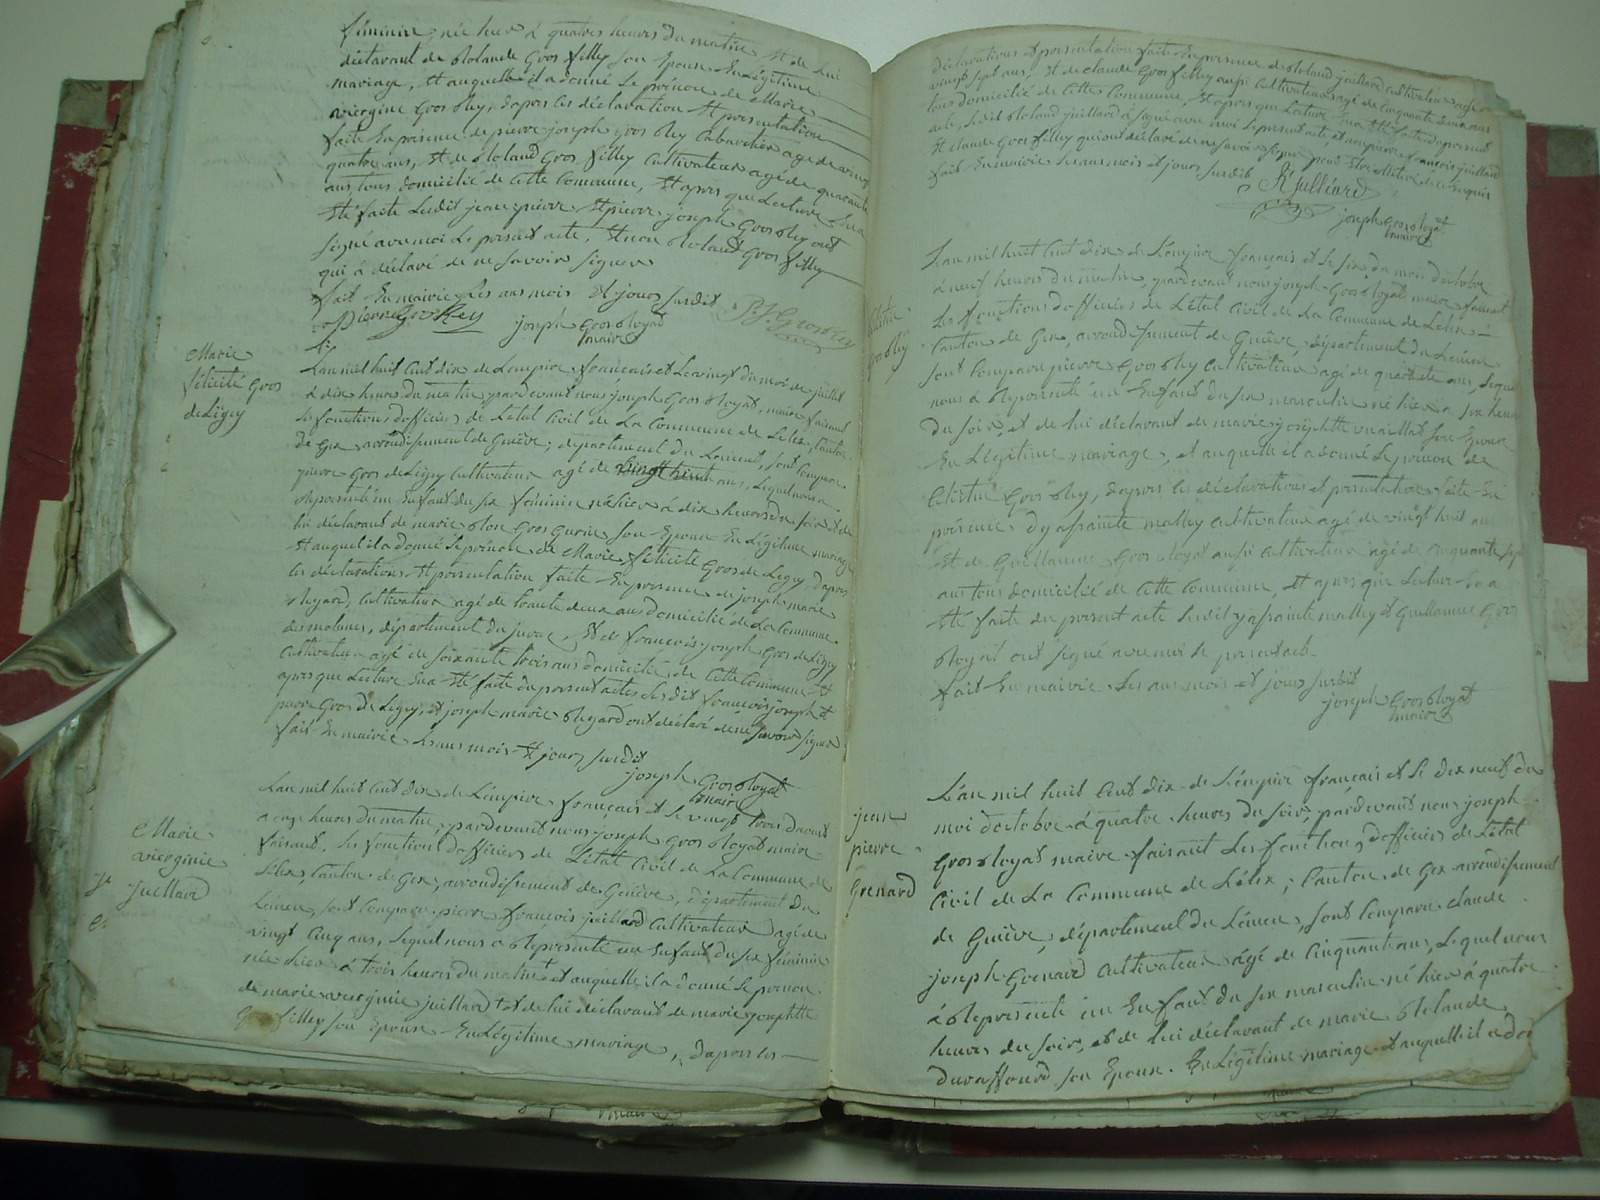 féminin, née hier à quatres heures du matin et de lui
déclarant de Rolande Gros filley son Epouse En Légitime
mariage, Et auquelle il a donné le prénon de Marie
viergine Gros Rey, dapres les déclaration Et présentation
faite En présence de pierre joseph gros Rey Cabaretier agé de
quatre ans, Et de Roland Gros filley Cultivateur agé de quarante
ans, tous domicilié de Cette Commune, Et apres que Lecture En a
Eté faite Ledit jean pierre Et pierre joseph Gros Rey ont
signé avec moi Le présent acte, Et non Roland Gros filley
qui à déclaré de ne savoir signer
fait En mairie Les ans mois Et jours susdit
Pierre Gros Rey joseph Gros Royat P J Gros Rey
maire
Marie
félicité Gros
de Légey
L'an mil huit Cent dix de Lempire francais et Le vingt du moi de juillet
à dix heures du matin pardevant nous joseph Gros Royat, maire faisant
les fonctions d'officier de Létat Civil de La Commune de Lélex, Canton
de Gex arrondissement de Genève, département du Léman, sont Comparu
pierre Gros de Légey Cultivateur agé de vingt huit ans, Lequel nous a
Représenté un Enfant du sex féminin née hier à dix heures du soir et de
lui déclarant de marie Gros Gurin son Epouse En Légitime mariage
Et auquel il a donné le prénon de Marie félicité Gros de Légey, dapres
les déclarations Et présentation faite En présence de joseph marie
Regard, Cultivateur agé de trante deux ans domicilié de La Commune
des molunes, département du jurat, Et de francois joseph Gros de Légey
Cultivateur agé de soixante trois ans domicilié de Cette Commune Et
apres que Lecture En a Eté faite du présent acte les dit francois joseph et
pierre Gros de Légey, et joseph marie Regard ont déclaré de ne savoir signer
fait En mairie Les ans mois Et jours susdit
joseph Gros Royat
maire
Marie
viergine
juillard
L'an mil huit Cent dix de Lémpire francais et le vingt trois d'aout
a onze heures du matin, pardevant nous joseph Gros Royat maire
faisant les fonctions d'officier de Létat Civil de La Commune de
Lélex, Canton de Gex, arrondissement de Genève, département du
Léman, sont Comparu pierre francois juillard Cultivateur agé de
vingt Cinq ans, Lequel nous a Représenté un Enfant du sex féminin
née hier à trois heures du matin et auquelle il a donné le prénon
de marie viergine juillard Et de lui déclarant de marie josephtte
Gros filley son Epouse En Légitime mariage, dapres les
déclarations et présentation faite En présence de Roland juillard Cultivateur agé de
vingt sept ans, Et de Claude Gros filley aussi Cultivateur agé de Cinquante ans
tous domicilié de Cette Commune, Et apres que Lecture En a Eté faite du présent
acte, Ledit Roland juillard à signé avec moi Le présent acte, et non pierre francois juillard
Et Claude Gros filley qui ont déclaré de ne savoir signer pour Etre de ce requis
fait En mairie Les ans mois et jours susdit R Julliard
joseph Gros Royat
maire
Célestin
Gros Rey
L'an mil huit Cent dix de Lémpire français et le six du mois d'octobre
à neuf heures du matin, pardevant nous joseph Gros Royat maire faisant
Les fonctions d'officier de Létat Civil de La Commune de Lélex
Canton de Gex, arrondissement de Genève, département du Léman
sont Comparu pierre Gros Rey Cultivateur agé de quarante ans, Lequel
nous à Représenté un Enfant du sex masculin né hier a six heures
du soir, et de lui déclarant de marie josephtte son Epouse
En Légitime mariage, et auquelle il a donné le prénon de
Célestin Gros Rey, dapres les déclarations et présentation faite En
présence d'yassainte malley Cultivateur agé de vingt huit ans
Et de Guillaume Gros Royat aussi Cultivateur agé de cinquante sept
ans tous domicilié de Cette Commune, Et apres que Lecture En a
Eté faite du présent acte Ledit yassainte malley Et Guillaume Gros
Royat ont signé avec moi le présent acte
fait En mairie Les ans mois et jours susdit
joseph Gros Royat
maire
jean
pierre
Grenard
L'an mil huit Cent dix de Lémpire français et le dix neuf du
moi d'octobre à quatre heures du soir, pardevant nous joseph
Gros Royat maire faisant Les fonctions d'officier de Létat
Civil de La Commune de Lélex, Canton de Gex arrondissement
de Genève, département du Léman, sont Comparu Claude
joseph Grenard Cultivateur agé de Cinquante ans, Lequel nous
à Représenté un Enfant du sex masculin né hier à quatre
heures du soir, et de lui déclarant de marie Rolande
Duraffourd son Epouse En Légitime mariage et auquelle il a don